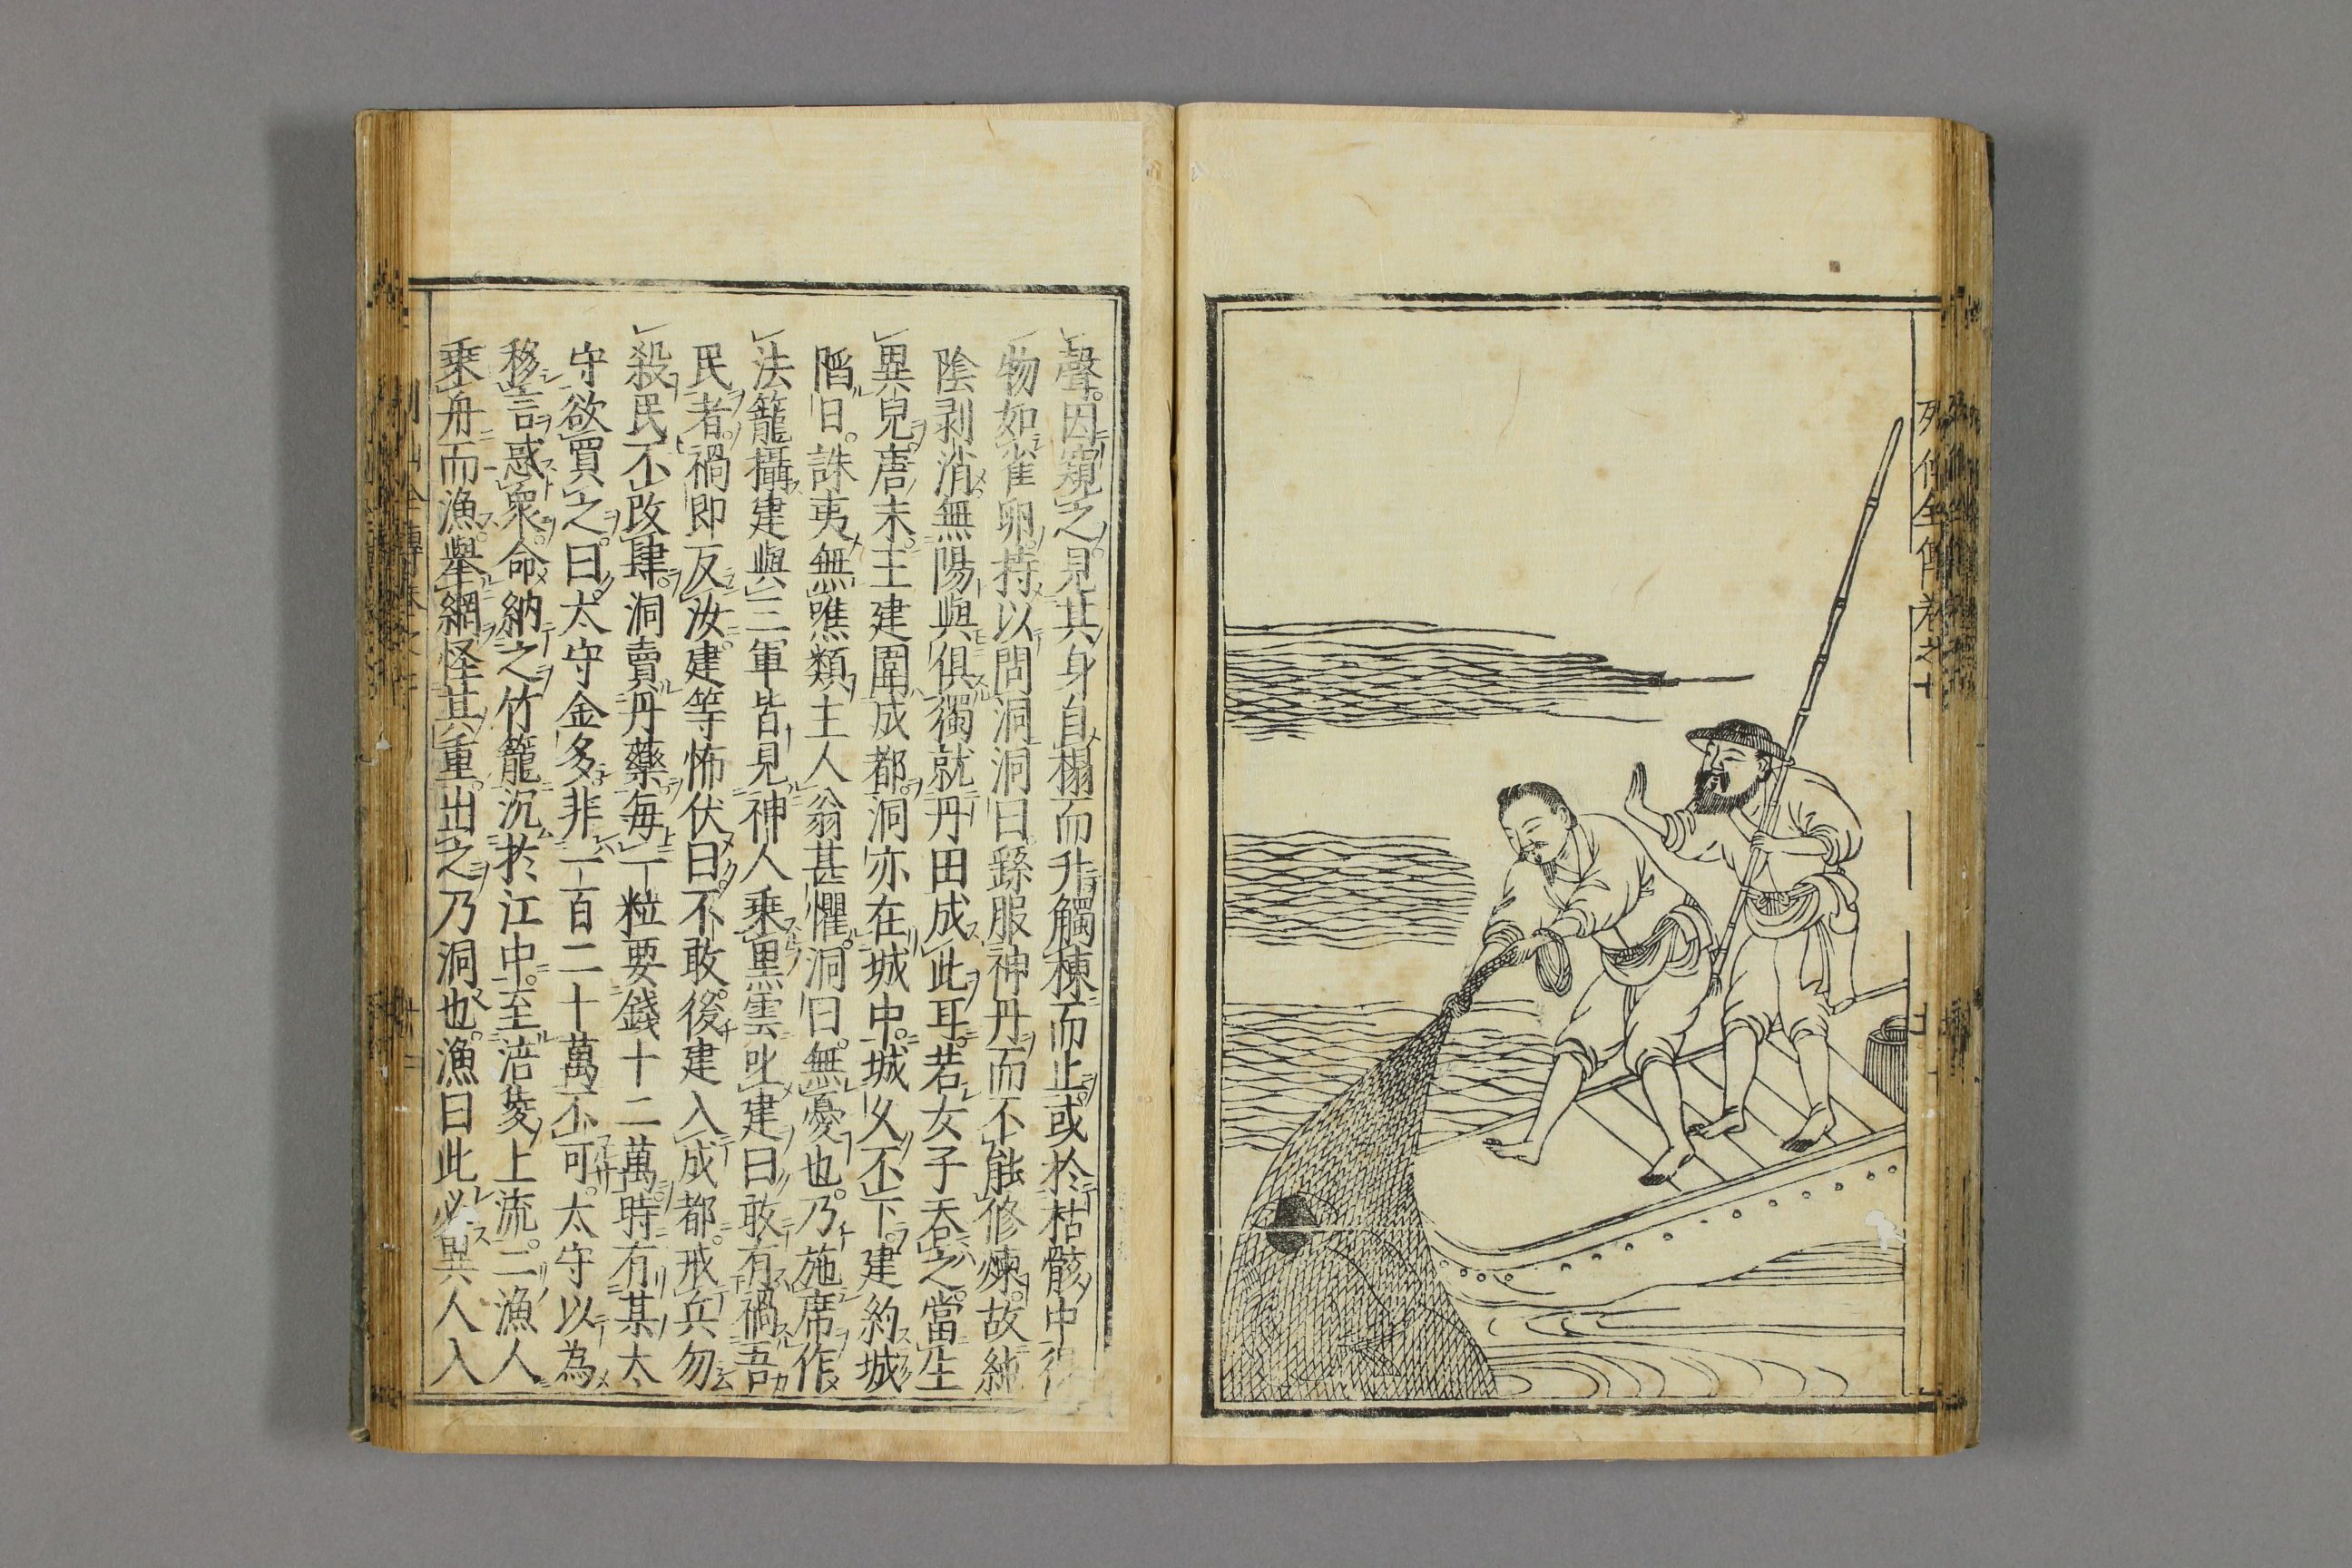 列仙全傳卷之七
聲。因窺之。見其身自榻而升觸棟而止。或於枯骸中得
物如雀卵。持以問洞。洞曰。繇服神丹而不能修煉。故純
陰剥消。無陽與俱。獨就丹田成此耳。若女子吞之。當生
異兒。唐末。王建圍成都。洞亦在城中。城久不下。建約城
陷日。誅夷無噍類。主人翁甚懼。洞曰。無憂也。乃施席作
法籠攝建與三軍。皆見神人乘黒雲叱建曰敢有禍吾
民者。禍即反汝。建等怖伏曰。不敢。後建入成都。戒兵勿
殺民。不改肆。洞賣丹藥。毎一粒要錢十二萬。時有某太
守欲買之。曰。太守金多。非一百二十萬不可。太守以為
移言惑衆。命納之竹籠沉於江中。至涪陵上流。二漁人
乘舟而漁。舉網怪其重。出之乃洞也。漁曰此必異人入